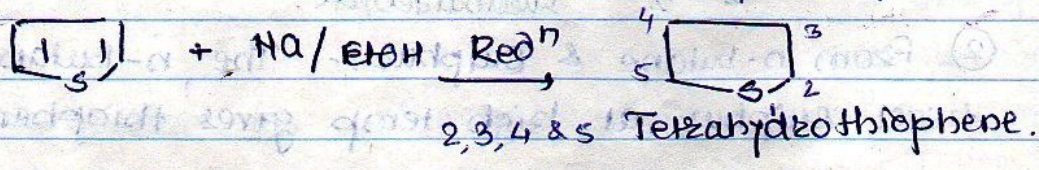 S + Na/EtOH Redⁿ → 4 3 5 S 1 2
2,3,4 & 5 Tetrahydrothiophene.